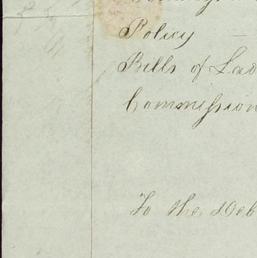 Policy —
Bills of Lad
Commission
To the Deb